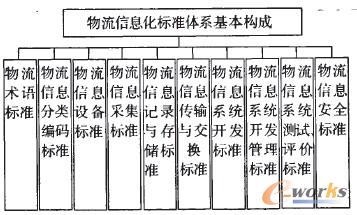 物流信息化标准体系基本构成
物流
术语
标准
物流
信息
分类
编码
标准
物流
信息
设备
标准
物流
信息
采集
标准
物流
信息
记录
与存
储标
准
物流
信息
传输
与交
换标
准
物流
信息
系统
开发
标准
物流
信息
系统
开发
管理
标准
物流
信息
系统
测试、
评价
标准
物流
信息
安全
标准
e-works